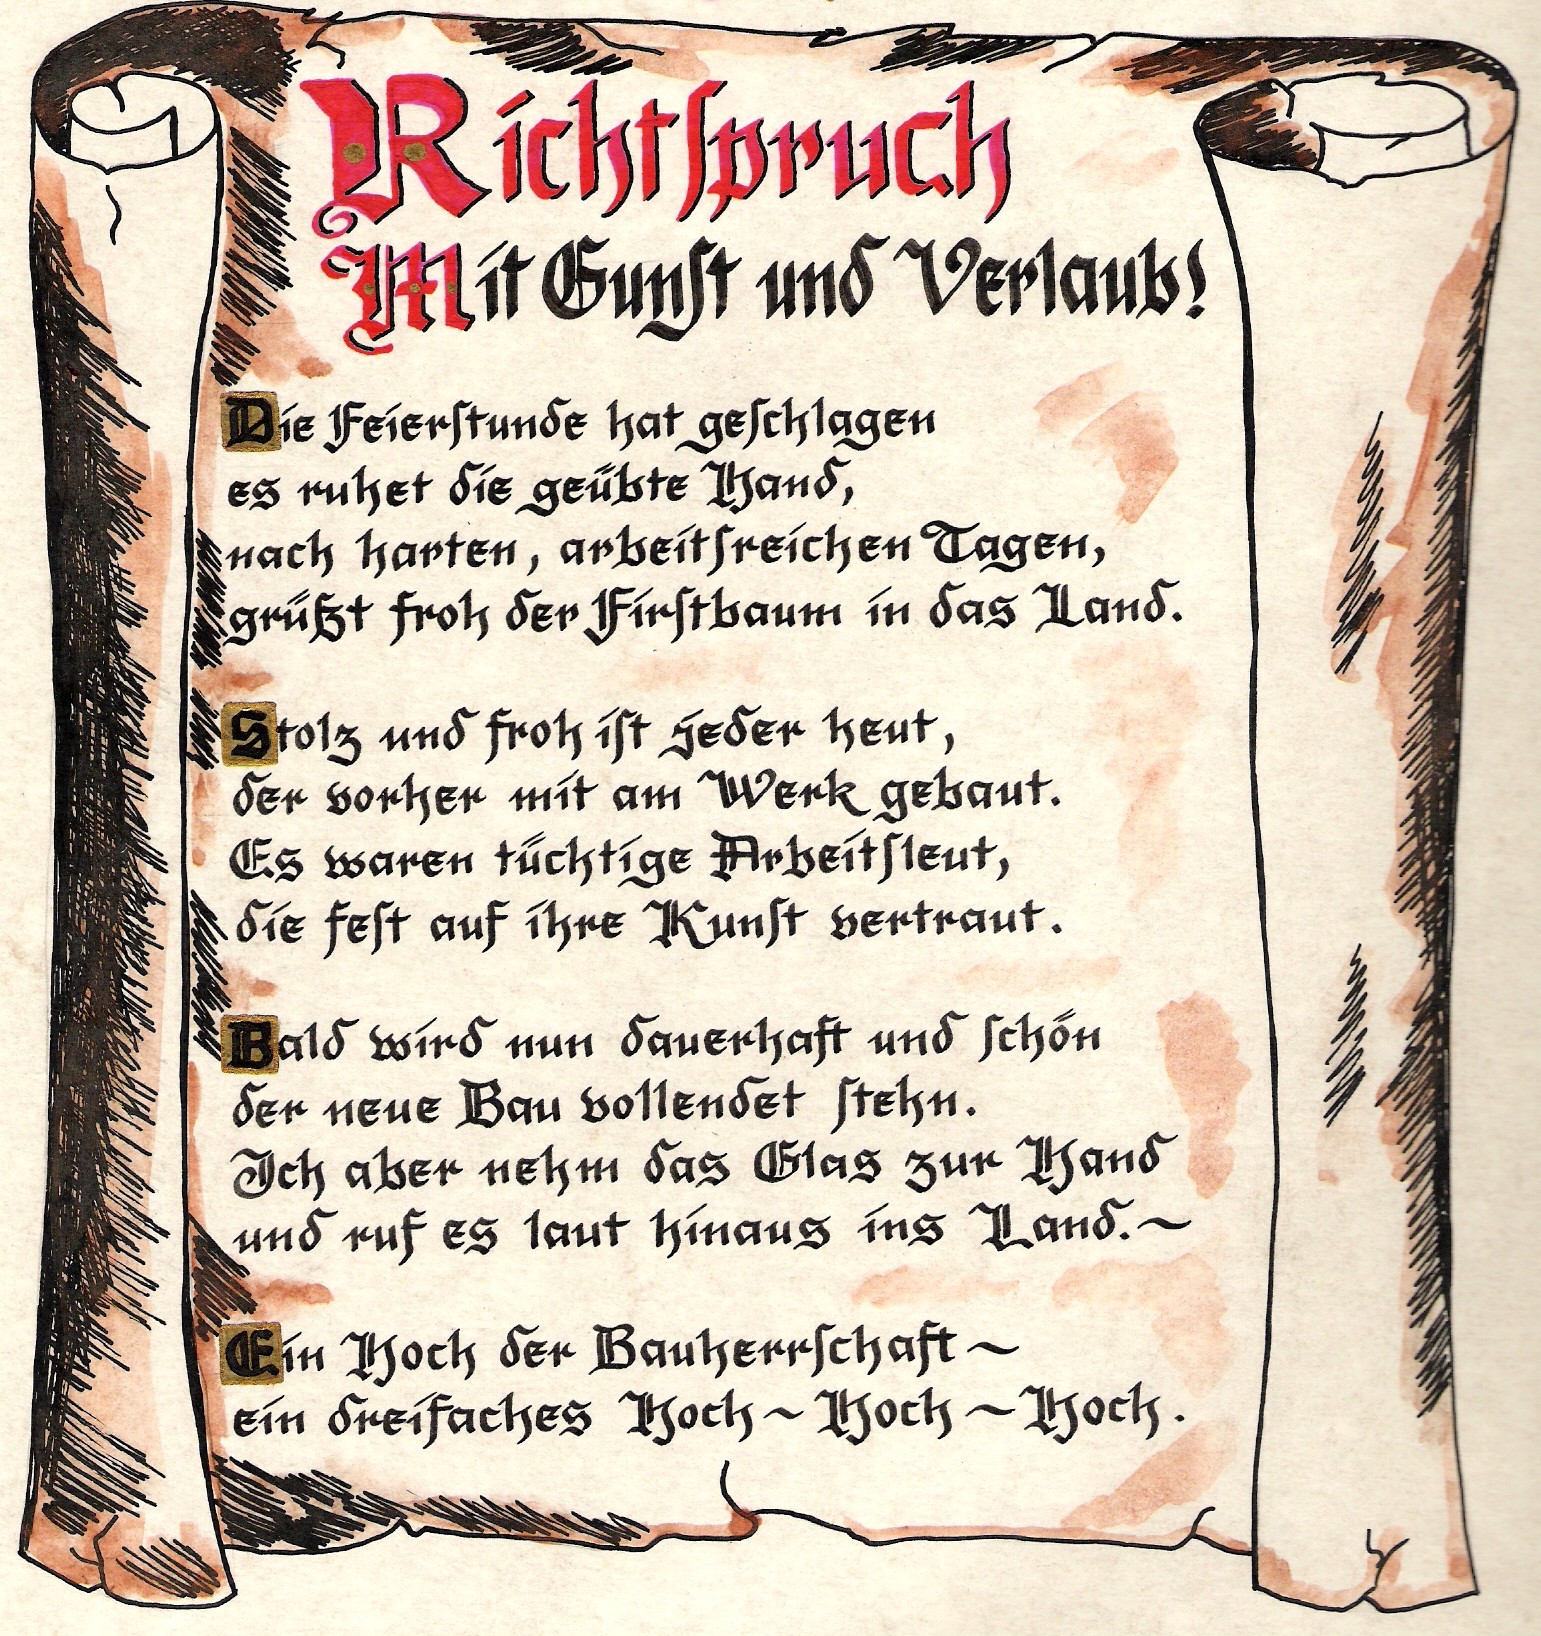 Richtspruch
Mit Gunst und Verlaub!
Die Feierstunde hat geschlagen
es ruhet die geübte Hand,
nach harten, arbeitsreichen Tagen,
grüßt froh der Firstbaum in das Land.
Stolz und froh ist jeder heut,
der vorher mit am Werk gebaut.
Es waren tüchtige Arbeitsleut,
die fest auf ihre Kunst vertraut.
Bald wird nun dauerhaft und schön
der neue Bau vollendet stehn.
Ich aber nehm das Glas zur Hand
und ruf es laut hinaus ins Land.~
Ein Hoch der Bauherrschaft ~
ein dreifaches Hoch ~ Hoch ~ Hoch.